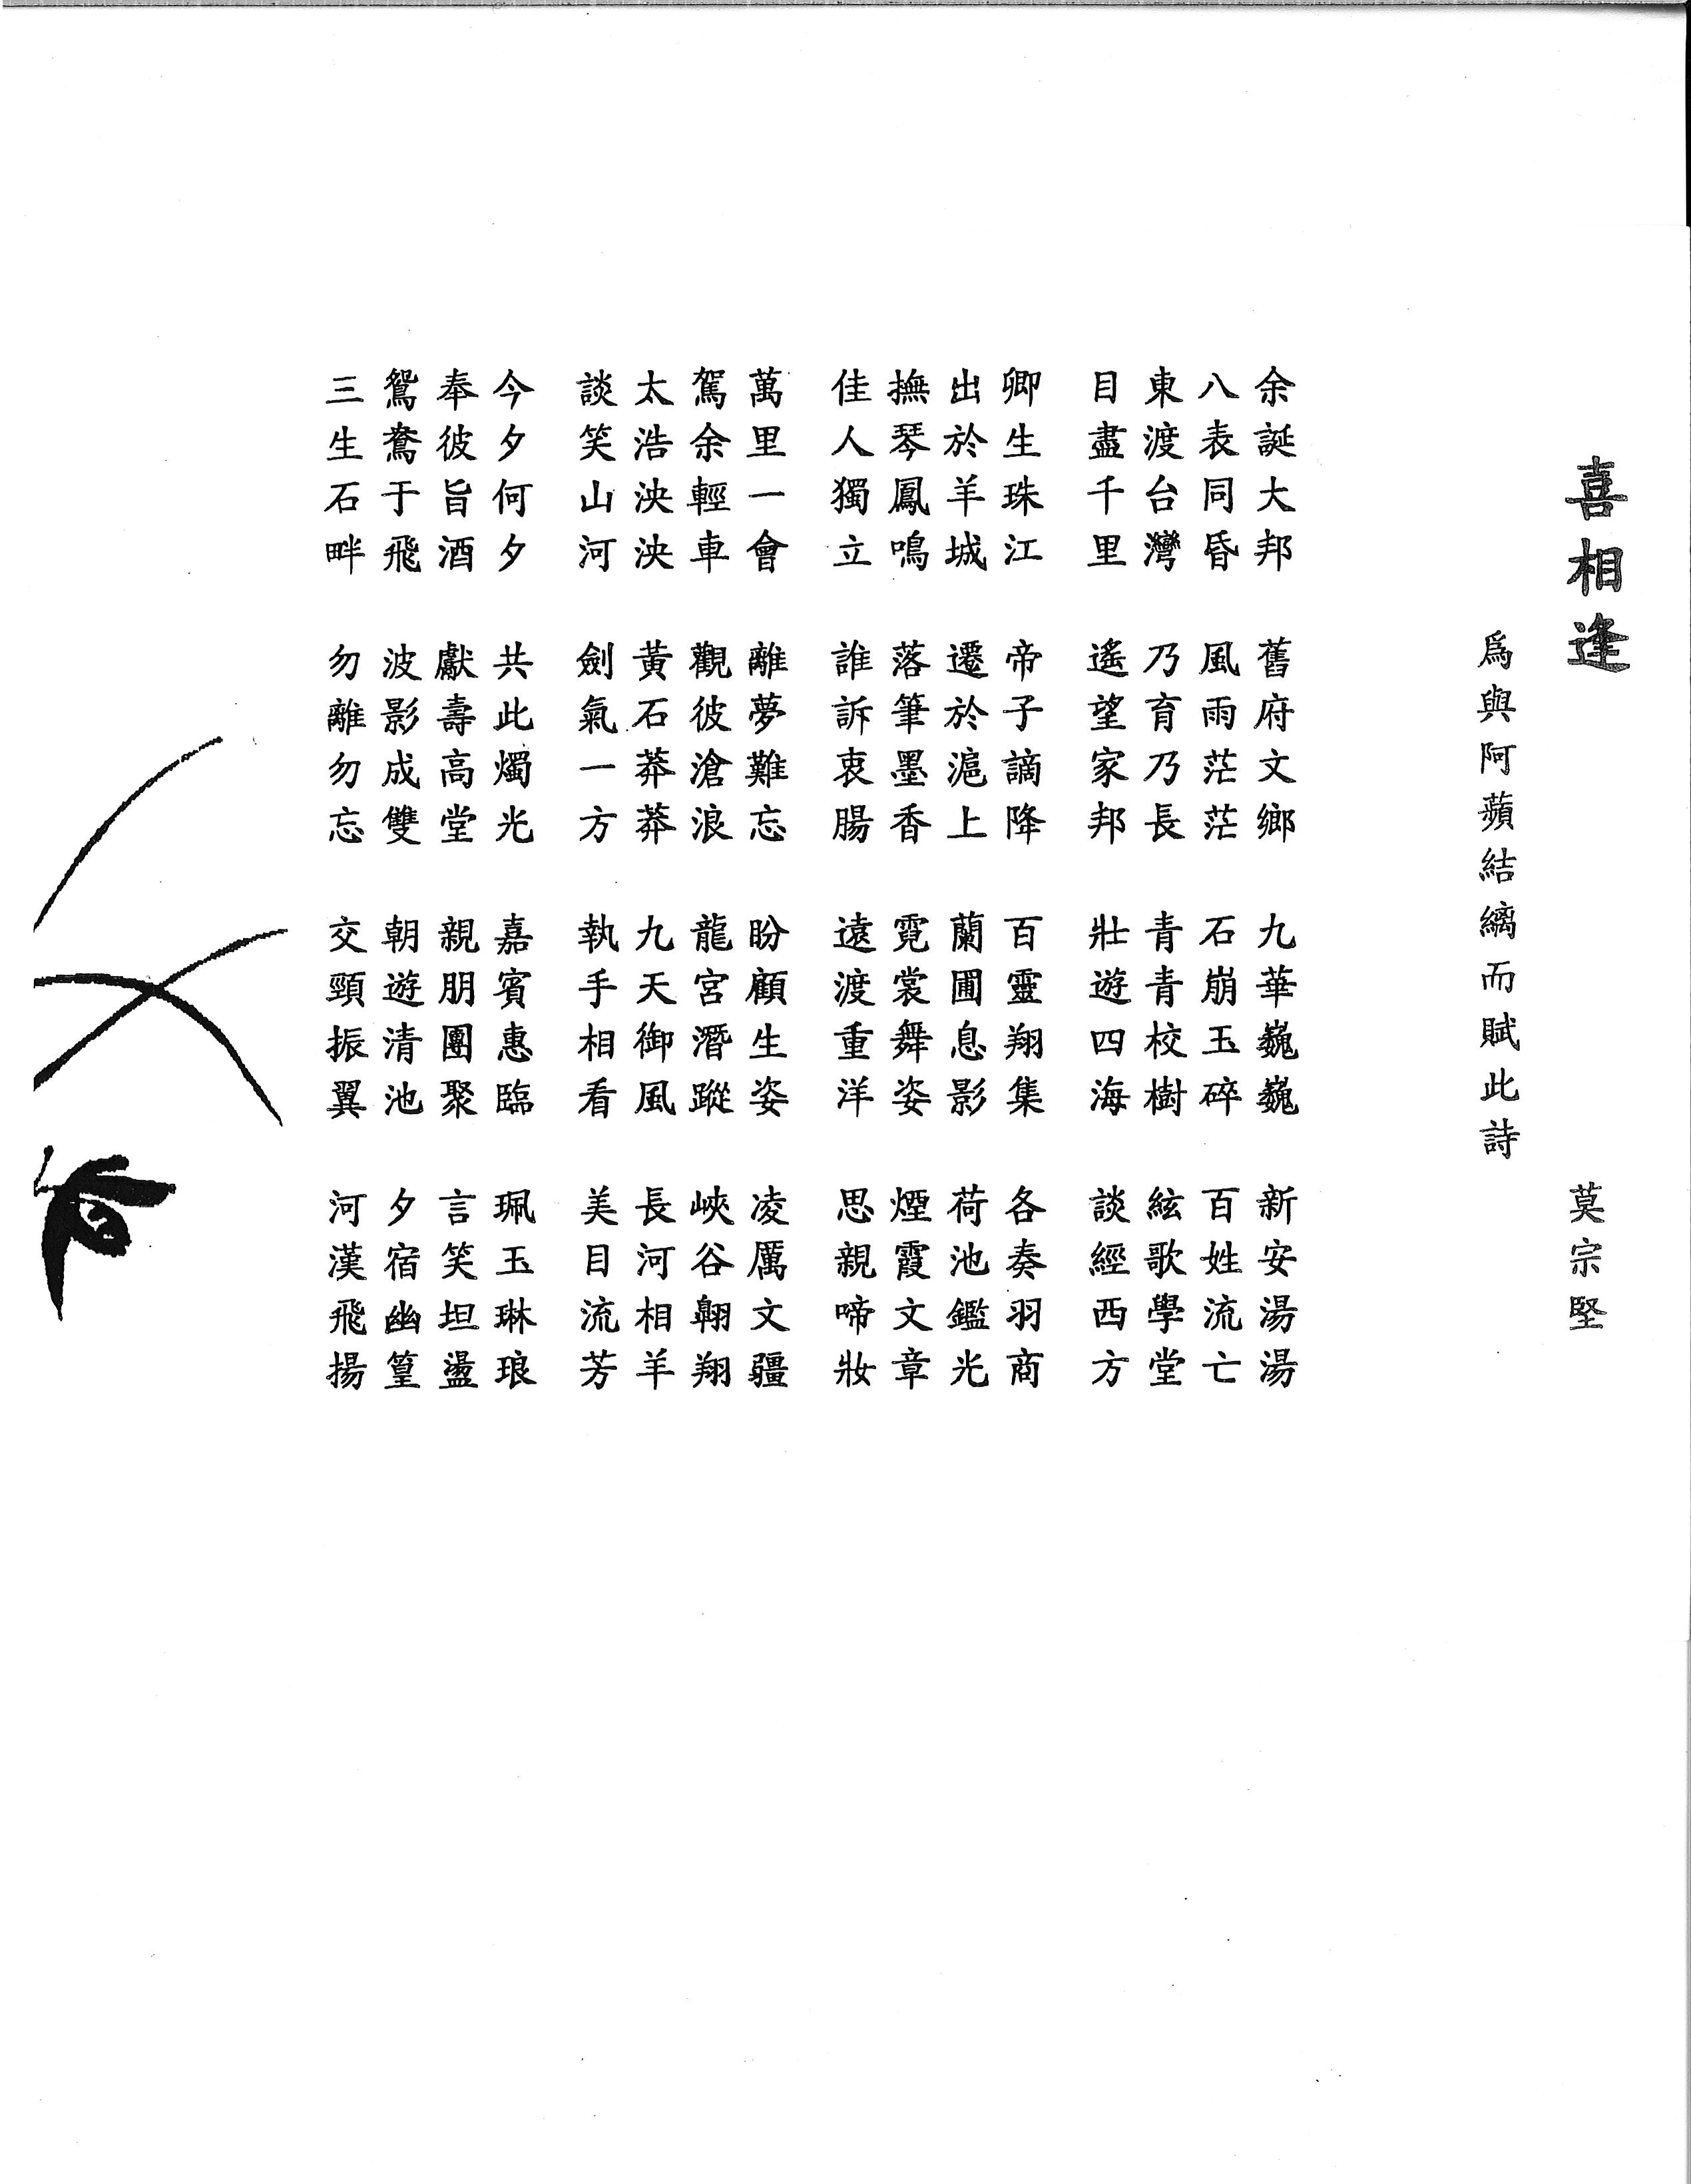 喜相逢 莫宗堅
爲與阿蘋結縭而賦此詩
余誕大邦 舊府文鄉 九華巍巍 新安湯湯
八表同昏 風雨茫茫 石崩玉碎 百姓流亡
東渡台灣 乃育乃長 青青校樹 絃歌學堂
目盡千里 遙望家邦 壯遊四海 談經西方
卿生珠江 帝子謫降 百靈翔集 各奏羽商
出於羊城 遷於滬上 蘭圃息影 荷池鑑光
撫琴鳳鳴 落筆墨香 霓裳舞姿 煙霞文章
佳人獨立 誰訴衷腸 遠渡重洋 思親啼妝
萬里一會 離夢難忘 盼顧生姿 凌厲文疆
駕余輕車 觀彼滄浪 龍宮潛蹤 峽谷翱翔
太浩泱泱 黃石莽莽 九天御風 長河相羊
談笑山河 劍氣一方 執手相看 美目流芳
今夕何夕 共此燭光 嘉賓惠臨 珮玉琳琅
奉彼旨酒 獻壽高堂 親朋團聚 言笑坦盪
鴛鴦于飛 波影成雙 朝遊清池 夕宿幽篁
三生石畔 勿離勿忘 交頸振翼 河漢飛揚